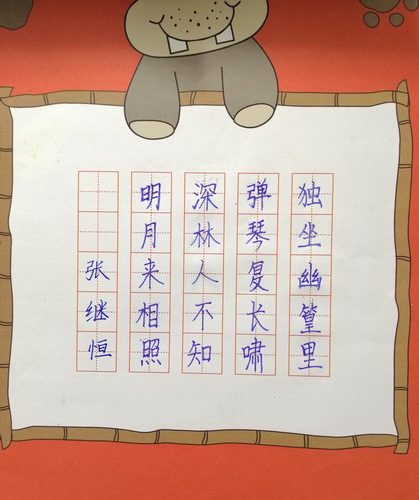 独坐幽篁里
弹琴复长啸
深林人不知
明月来相照
张继恒